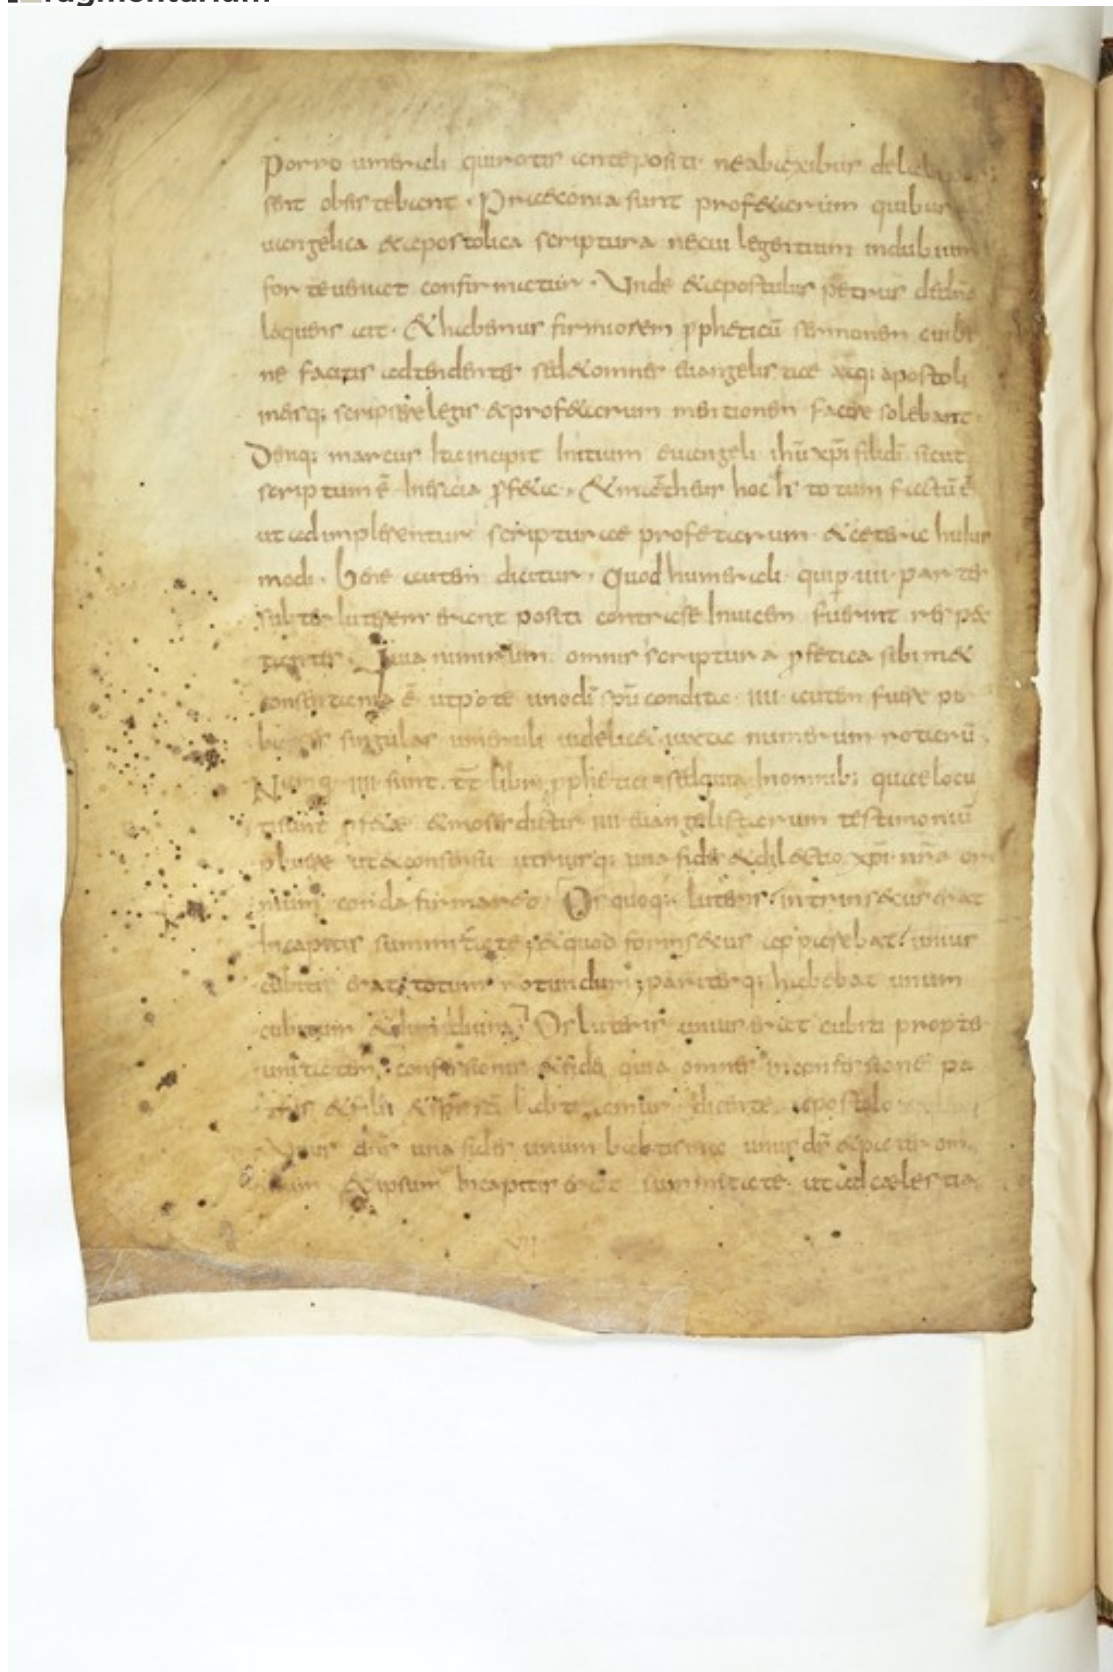 Porro umeruli qui rotis ante positi ne ab axibus
sent obsistebant. Praeconia sunt prof&arum quibus
uangelica &apostolica scriptura necui legentium indubium
forte ueniat confirmatur. Unde &apostulus p&rus
loquens ait. &habemus firmiorem ꝓpheticū sermonem cui
ne facitis adtendentes sed&omnes euangelistae atq; apostoli
ineisq; scripsere legis &prof&arum mentionem facere solebant.
Denq; marcus ita incipit Initium euangeli ihū xp̄i filidī sicut
scriptum ē Inesaia ꝓf&a. &matheus hoc h totum factū ē
ut adimplerentur scripturae prof&arum &cetera huius
modi. bene autem dicitur. Quod humeruli qui ꝑ iiii partes
subter luterem erant positi contrase Inuicem fuerint respec
tantes. Quia nimirum omnis scriptura ꝓfetica sibim&
consentanea ē utpote unodī spū condita. iiii autem fuere
singulas umeruli uidelic& iuxta numerum rotarū.
Namq; iiii sunt. libri ꝓph&ici sedquia Inomnib; quaelocu
tisunt ꝓf&ae &moses dictis iiii euangelistarum testimoniū
ut&consensu utriusq; una fides &dilectio xp̄i
nium corda firmando Os quoq; luteris intrinsecus erat
Incapitis summitate; &quod forinsecus apparebat unius
cubiti erat totum rotundum; pariterq; habebat unum
cubitum &dimidium Os luteris unius erat cubiti propter
unitatem confessionis &fidei quia omnes inconfessione pa
tris &filii &sp̄s dicente apostolo
Unus dn̄s una fides unum babtisma unus dī &pater om
nium &ipsum Incapitis erat summitate. ut adcaelestia